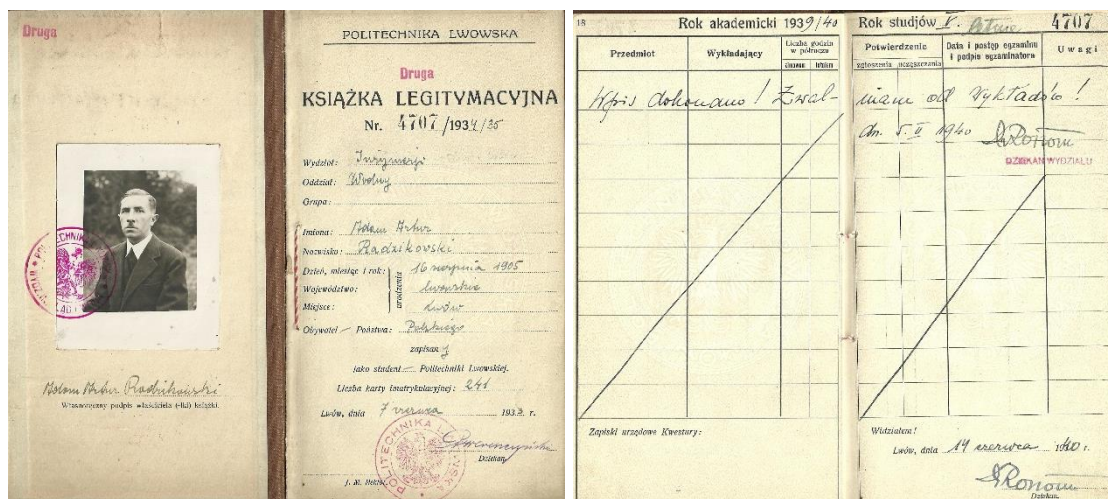 Druga
Adam Artur Radzikowski
Własnoręczny podpis właściciela (-lki) książki.
POLITECHNIKA LWOWSKA
Druga
KSIĄŻKA LEGITYMACYJNA
Nr. 4707/1934/35
Wydział: Inżynierji
Oddział: Wodny
Grupa:
Imiona: Adam Artur
Nazwisko: Radzikowski
Dzień, miesiąc i rok: 16 sierpnia 1905
Województwo: lwowskie
Miejsce: Lwów
urodzenia
Obywatel — Państwa: Polskiego
zapisany
jako student — Politechniki Lwowskiej.
Liczba karty imatrykulacyjnej: 241
Lwów, dnia 7 czerwca 1933 r.
POLITECHNIKA LWOWSKA
Dziekan.
18
Rok akademicki 1939/40
Przedmiot
Wykładający
Liczba godzin
w półroczu
zimowem letniem
Wpis dokonano! Zwal-
Zapiski urzędowe Kwestury:
Rok studjów V. letnie
4707
Potwierdzenie
zgłoszenia uczęszczania
Data i postęp egzaminu
i podpis egzaminatora
Uwagi
niam od wykładów!
dn. 5.II 1940
DZIEKAN WYDZIAŁU
Widziałem!
Lwów, dnia 14 czerwca 1940 r.
Dziekan.